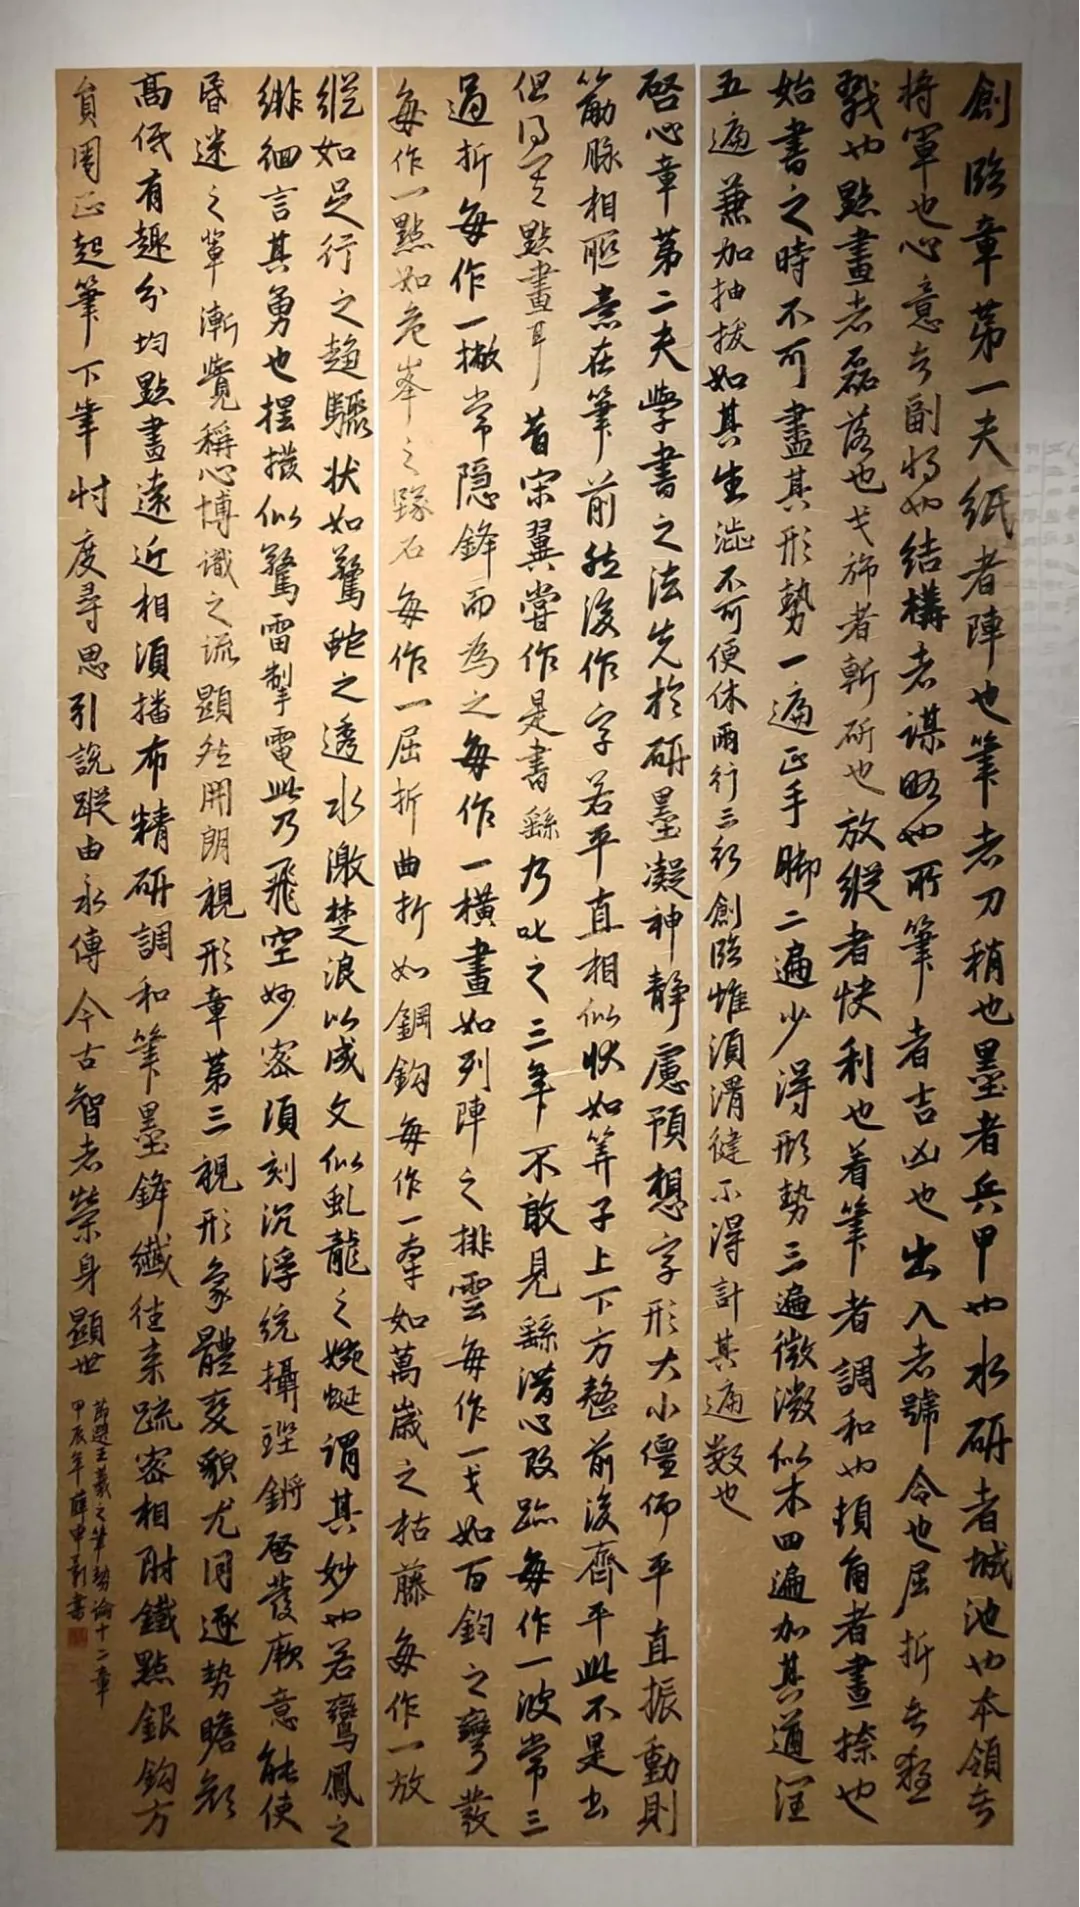 創臨章第一夫紙者陣也筆者刀矟也墨者兵甲也水研者城池也本領者
將軍也心意者副將也結構者謀略也所筆者吉凶也出入者號令也屈折者殺
戮也點畫者磊落也戈旆者斬斫也放縱者快利也着筆者調和也頓角者畫捺也
始書之時不可盡其形勢一遍正手腳二遍少得形勢三遍微微似本四遍加其遒潤
五遍兼加抽拔如其生澁不可便休兩行三行創臨惟須滑健不得計其遍數也
啓心章第二夫學書之法先於研墨凝神靜慮預想字形大小偃仰平直振動則
筋脉相聯意在筆前然後作字若平直相似狀如筭子上下方整前後齊平此不是書
但得其點畫耳昔宋翼嘗作是書繇乃叱之三年不敢見繇潛心改跡每作一波常三
過折每作一撇常隱鋒而為之每作一橫畫如列陣之排雲每作一戈如百鈞之弩發
每作一點如危峯之墜石每作一屈折曲折如鋼鉤每作一牽如萬歲之枯藤每作一放
縱如足行之趨驟狀如驚蛇之透水激楚浪以成文似虬龍之婉蜒謂其妙也若鸞鳳之
徘徊言其勇也擺撥似驚雷掣電此乃飛空妙密須刻沉浮統攝鏗鏘啓發厥意能使
昏迷之輩漸覺稱心博識之流顯然開朗視形章第三視形象體變貌尤同逐勢瞻顏
高低有趣分均點畫遠近相須播布精研調和筆墨鋒纖往來疏密相附鐵點銀鉤方
員周正起筆下筆忖度尋思引說蹤由永傳今古智者榮身顯世
節選王羲之筆勢論十二章
甲辰年薛申彩書